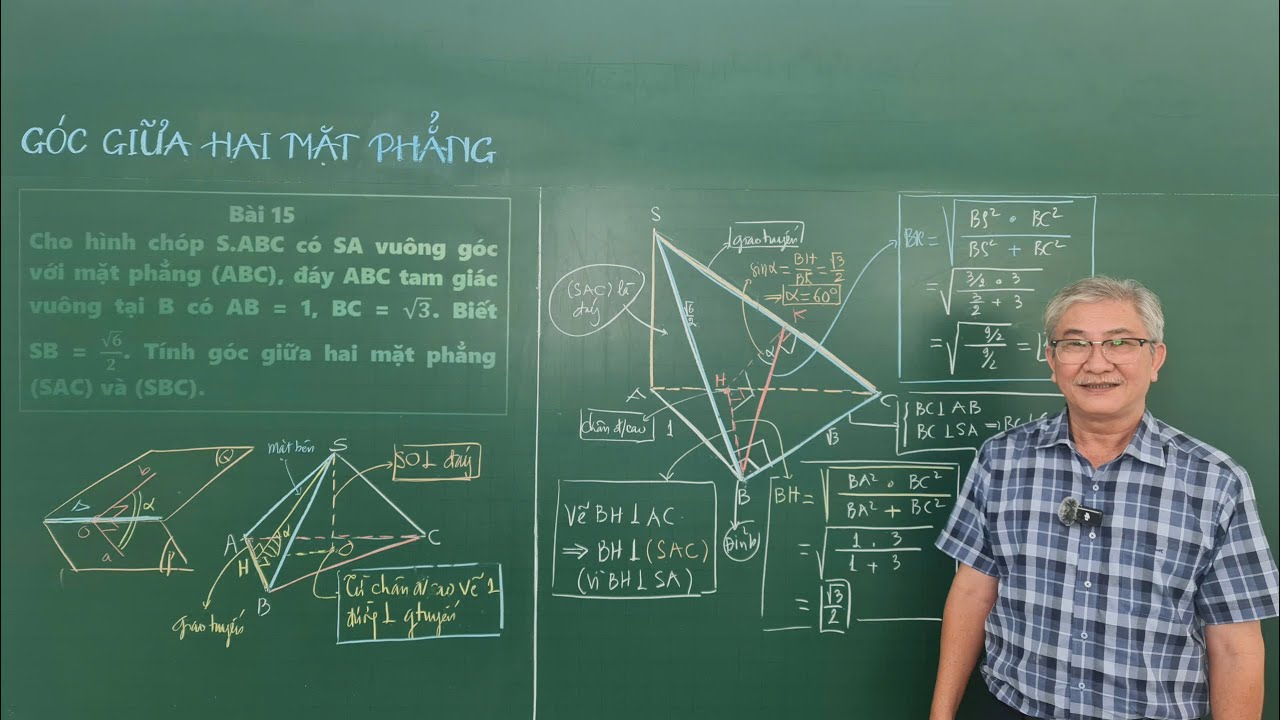 GÓC GIỮA HAI MẶT PHẲNG
Bài 15
Cho hình chóp S.ABC có SA vuông góc
với mặt phẳng (ABC), đáy ABC tam giác
vuông tại B có AB = 1, BC = √3. Biết
SB = √6/2. Tính góc giữa hai mặt phẳng
(SAC) và (SBC).
Q
b
Δ
α
O
a
P
mặt bên
S
SO⊥ đáy
α
A
H
O
C
B
giao tuyến
Từ chân đ/cao vẽ 1
đường ⊥ g tuyến
S
giao tuyến
(SAC) là
đáy
√6/2
sinα = BH/BK = √3/2
⇒ α = 60°
K
α
A
H
C
chân đ/cao
1
√3
B
Đỉnh
Vẽ BH⊥AC
⇒ BH⊥(SAC)
(vì BH⊥SA)
BK = √(BS² . BC² / BS² + BC²)
= √(3/2 . 3 / 3/2 + 3)
= √(9/2 / 9/2) =
BC⊥AB
BC⊥SA ⇒ BC⊥
BH = √(BA² . BC² / BA² + BC²)
= √(1 . 3 / 1 + 3)
= √3/2